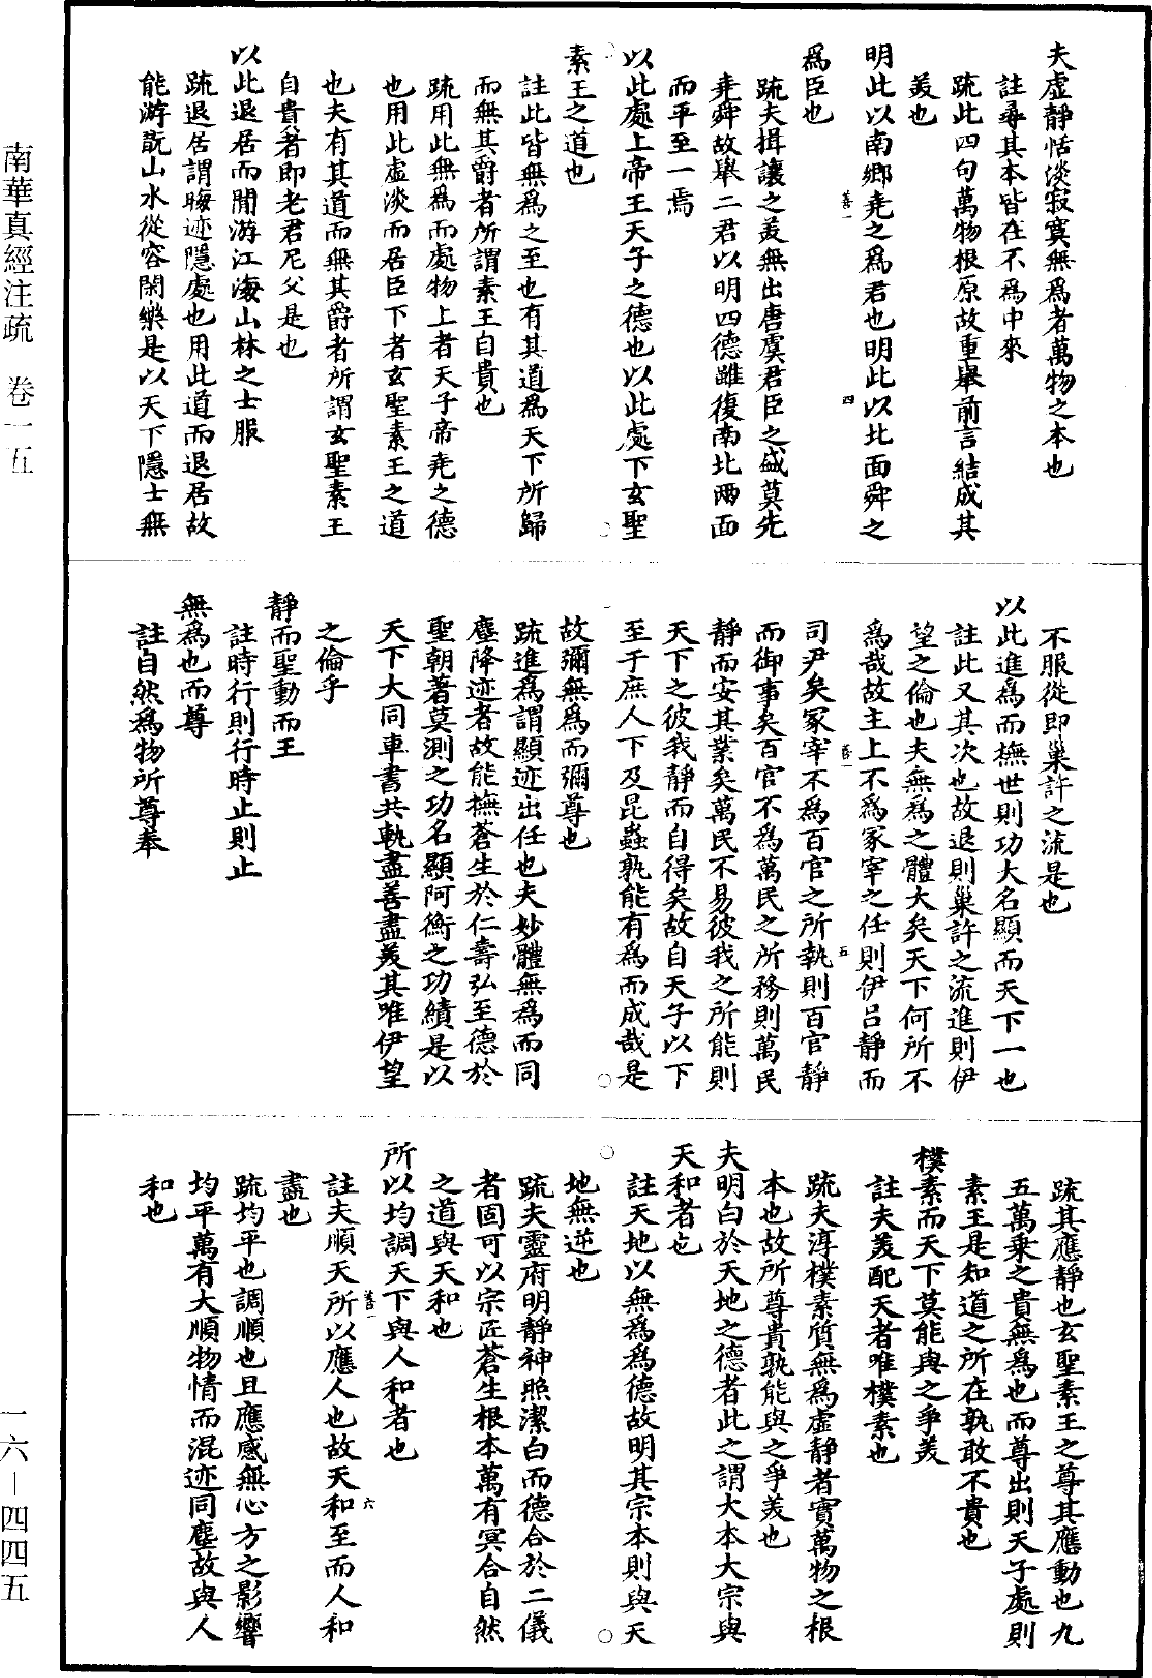 夫虛靜恬淡寂寞無爲者萬物之本也
註尋其本皆在不爲中來
疏此四句萬物根原故重舉前言結成其
美也
明此以南鄉堯之爲君也明此以北面舜之
爲臣也
疏夫揖讓之美無出唐虞君臣之盛莫先
堯舜故舉二君以明四德雖復南北兩面
而平至一焉
以此處上帝王天子之德也以此處下玄聖
素王之道也
註此皆無爲之至也有其道爲天下所歸
而無其爵者所謂素王自貴也
疏用此無爲而處物上者天子帝堯之德
也用此虛淡而居臣下者玄聖素王之道
也夫有其道而無其爵者所謂玄聖素王
自貴者即老君尼父是也
以此退居而閒游江海山林之士服
疏退居謂晦迹隱處也用此道而退居故
能游翫山水從容閑樂是以天下隱士無
不服從即巢許之流是也
以此進爲而撫世則功大名顯而天下一也
註此又其次也故退則巢許之流進則伊
望之倫也夫無爲之體大矣天下何所不
爲哉故主上不爲冢宰之任則伊呂靜而
司尹矣冢宰不爲百官之所執則百官靜
而御事矣百官不爲萬民之所務則萬民
靜而安其業矣萬民不易彼我之所能則
天下之彼我靜而自得矣故自天子以下
至于庶人下及昆蟲孰能有爲而成哉是
故彌無爲而彌尊也
疏進爲謂顯迹出任也夫妙體無爲而同
塵降迹者故能撫蒼生於仁壽弘至德於
聖朝著莫測之功名顯阿衡之功績是以
天下大同車書共軌盡善盡美其唯伊望
之倫乎
靜而聖動而王
註時行則行時止則止
無爲也而尊
註自然爲物所尊奉
疏其應靜也玄聖素王之尊其應動也九
五萬乘之貴無爲也而尊出則天子處則
素王是知道之所在孰敢不貴也
樸素而天下莫能與之爭美
註夫美配天者唯樸素也
疏夫淳樸素質無爲虛靜者實萬物之根
本也故所尊貴孰能與之爭美也
夫明白於天地之德者此之謂大本大宗與
天和者也
註天地以無爲爲德故明其宗本則與天
地無逆也
疏夫靈府明靜神照潔白而德合於二儀
者固可以宗匠蒼生根本萬有冥合自然
之道與天和也
所以均調天下與人和者也
註夫順天所以應人也故天和至而人和
盡也
疏均平也調順也且應感無心方之影響
均平萬有大順物情而混迹同塵故與人
和也
善一
四
善一
五
善一
六
南華真經注疏 卷一五
一六—四四五